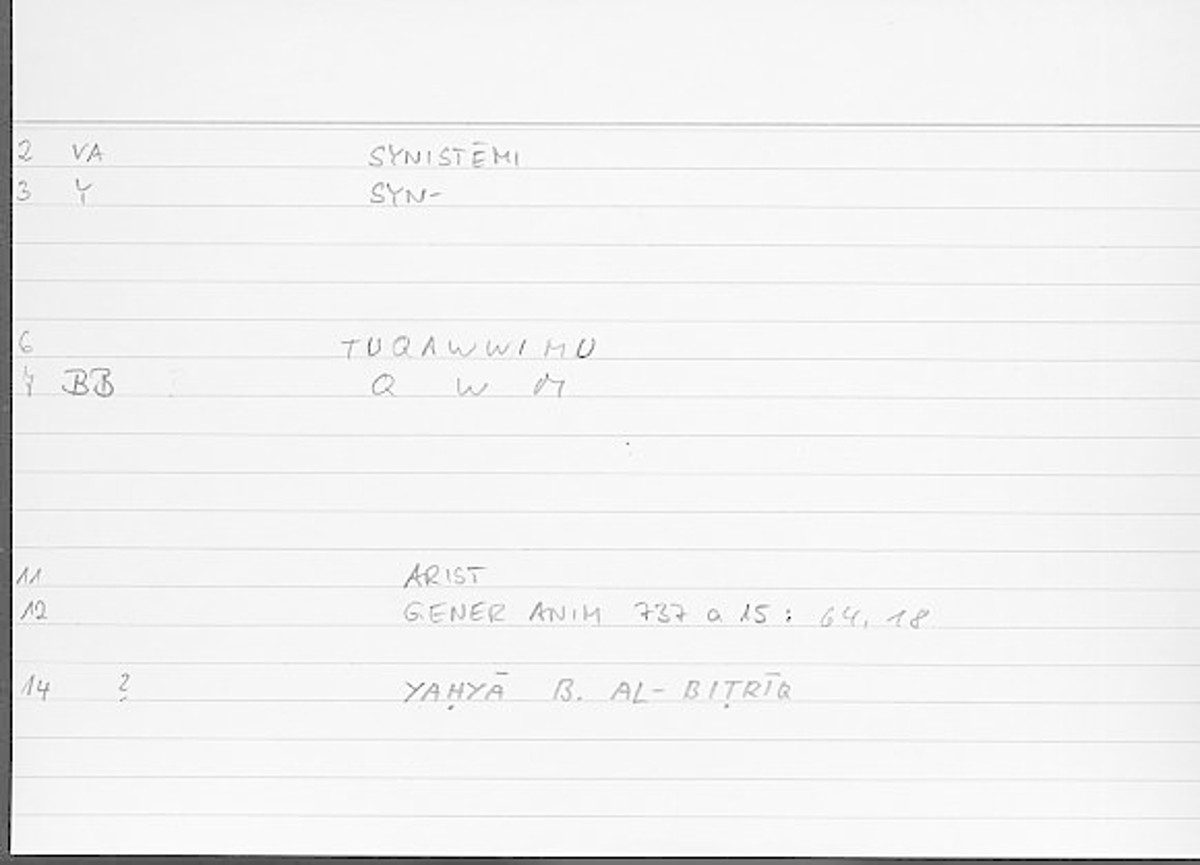 2 VA SYNISTĒMI
3 Y SYN-
6 TUQAWWIMU
Y BB Q W M
11 ARIST
12 GENER ANIM 737 a 15 : 64, 18
14 ? YAḤYĀ B. AL-BIṬRĪQ